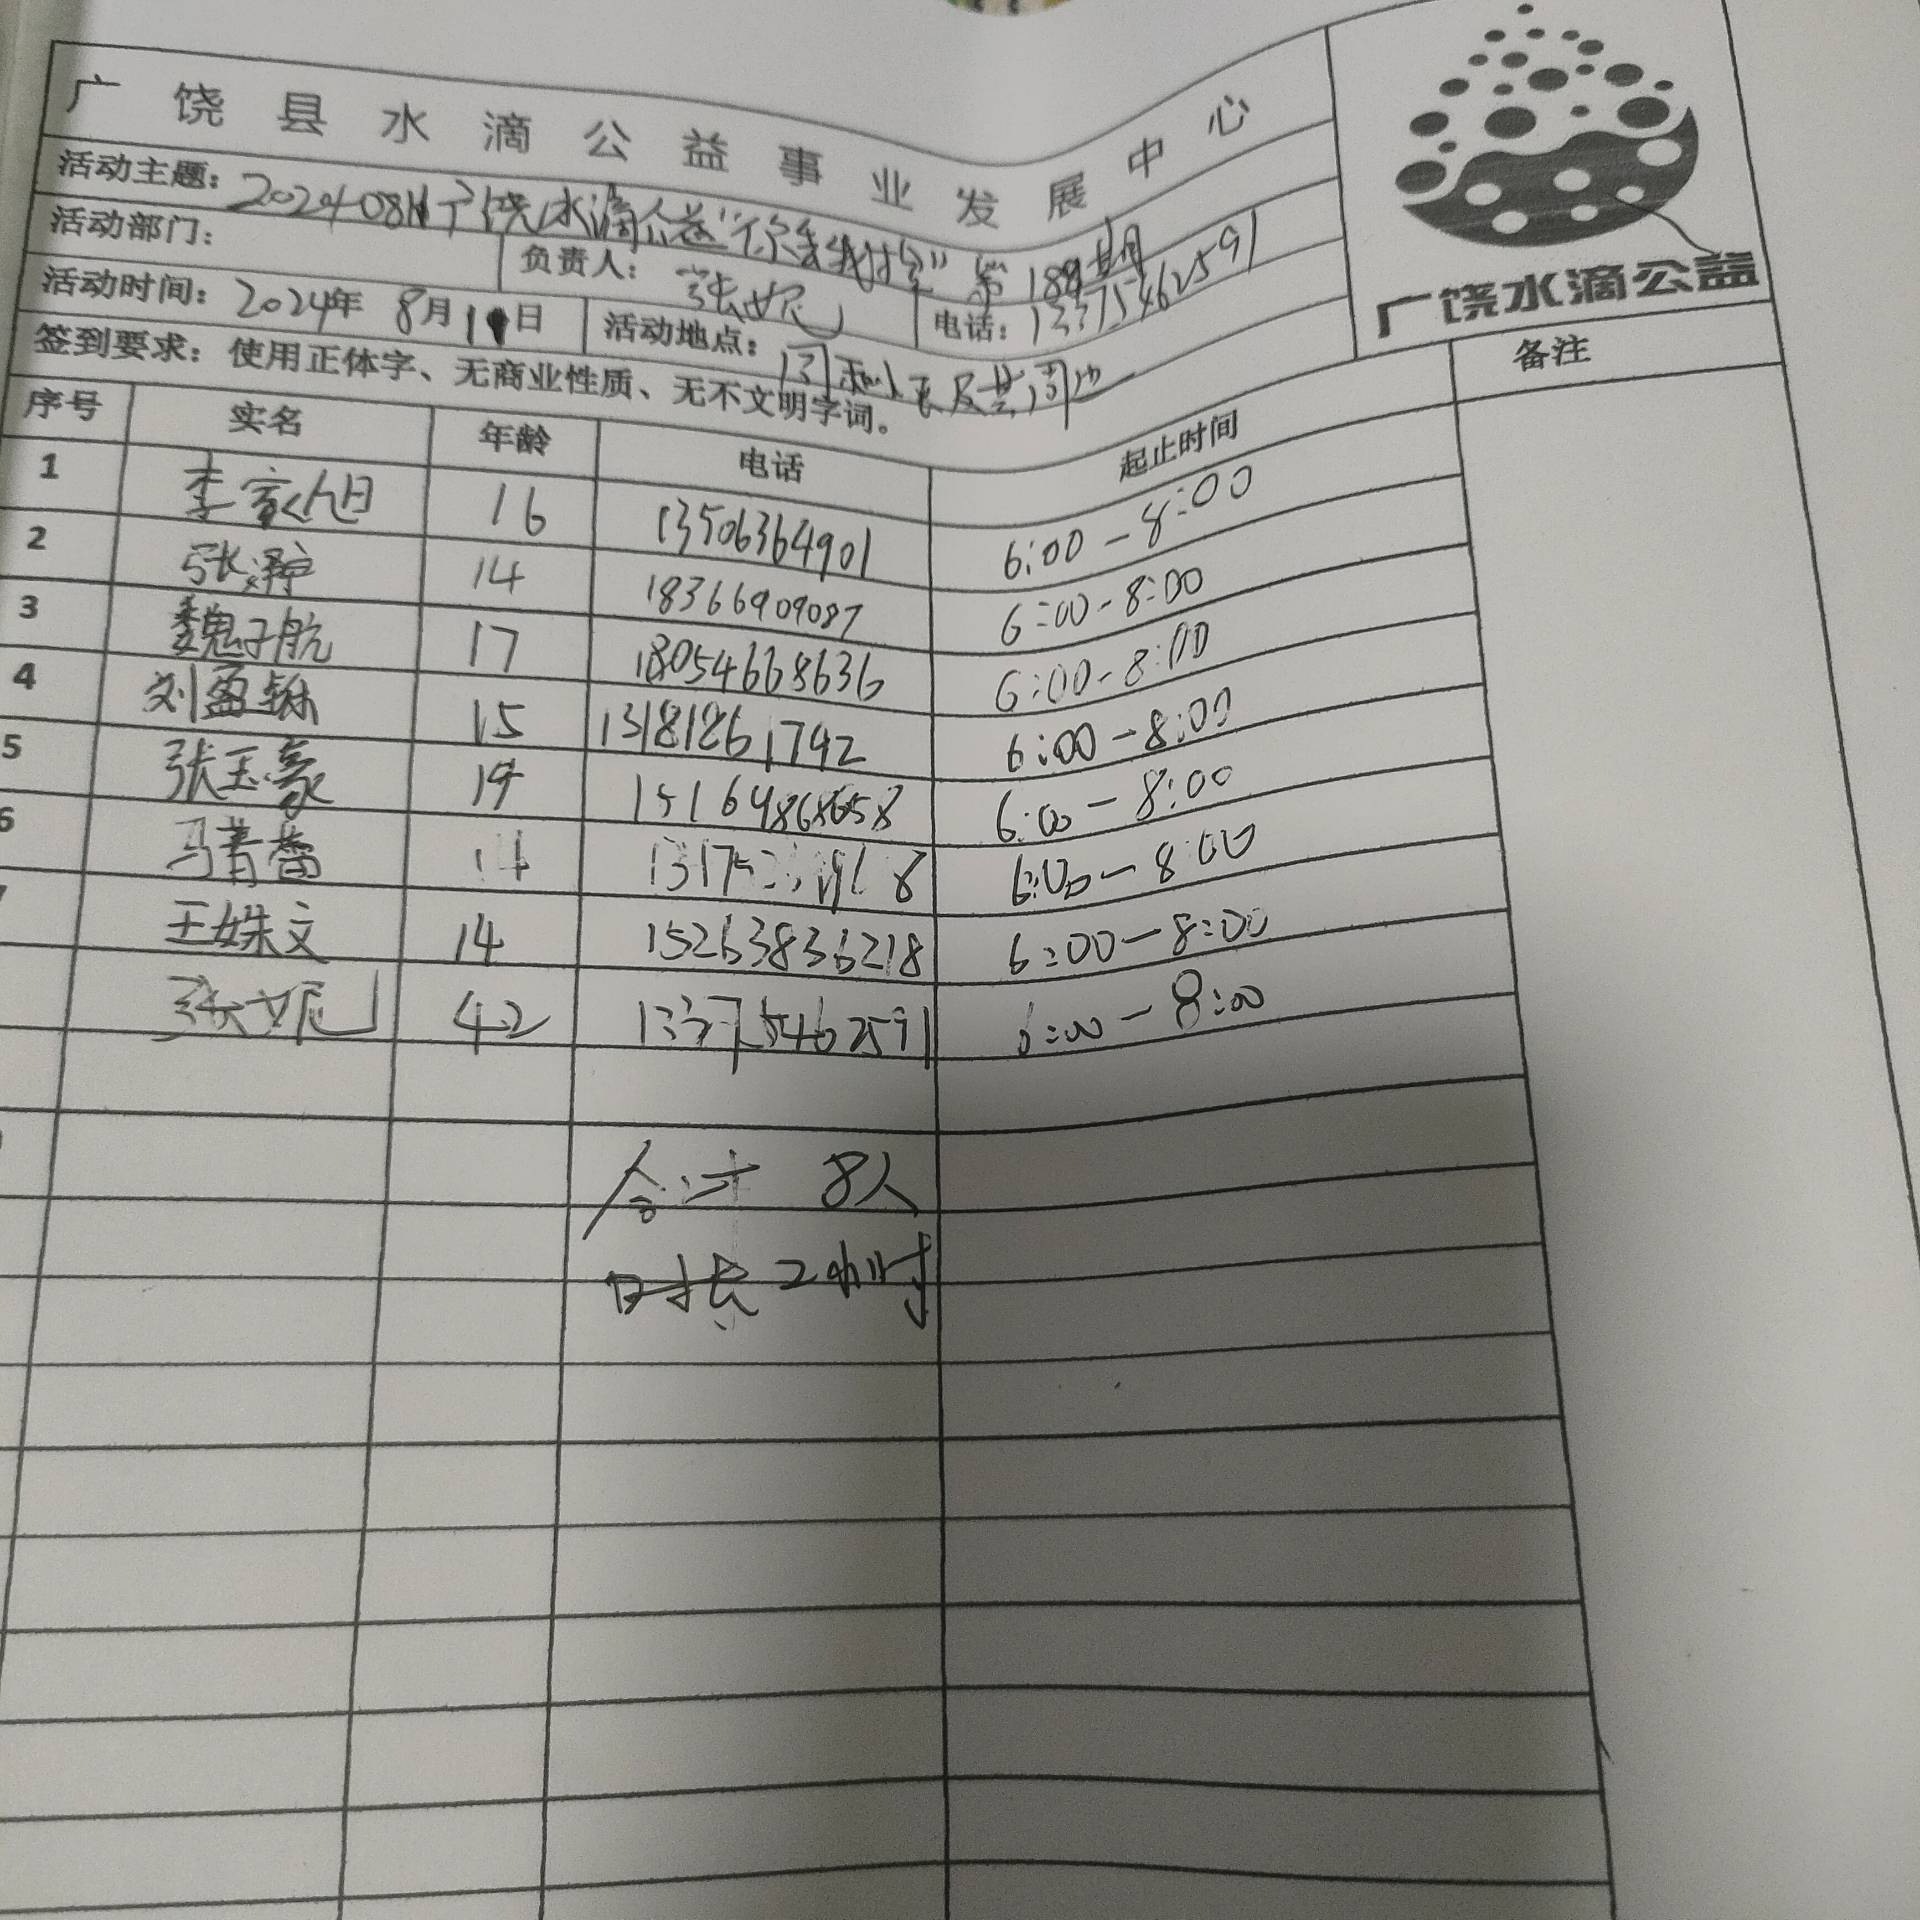 广饶县水滴公益事业发展中心
活动主题：20240811广饶水滴公益"你丢我捡"第188期
活动部门： 负责人：张妮 电话：13375462591
活动时间：2024年8月11日 活动地点：及其周边
签到要求：使用正体字、无商业性质、无不文明字词。
广饶水滴公益
序号 实名 年龄 电话 起止时间 备注
1 李家旭 16 13506364901 6:00-8:00
2 张 14 18366909087 6:00-8:00
3 魏子航 17 18054668636 6:00-8:00
4 刘盈 15 13181261792 6:00-8:00
5 张玉豪 6:00-8:00
6 马菁蔓 14 6:00-8:00
王姝文 14 15263836218 6:00-8:00
张妮 42 13375462591 6:00-8:00
合计 8人
时长2小时